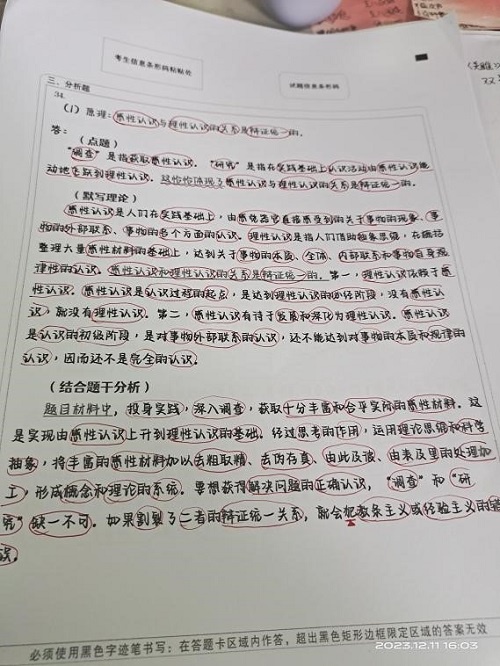 考生信息条形码粘贴处
试题信息条形码
三、分析题
34.
(1) 原理：感性认识与理性认识的关系是辩证统一的。
答：
（点题）
“调查”是指获取感性认识。“研究”是指在实践基础上认识活动由感性认识能
动地飞跃到理性认识。这恰恰体现了感性认识与理性认识的关系是辩证统一的。
（默写理论）
感性认识是人们在实践基础上，由感觉器官直接感受到的关于事物的现象、事
物的外部联系、事物的各个方面的认识。理性认识是指人们借助抽象思维，在概括
整理大量感性材料的基础上，达到关于事物的本质、全体、内部联系和事物自身规
律性的认识。感性认识和理性认识的关系是辩证统一的。第一，理性认识依赖于感
性认识。感性认识是认识过程的起点，是达到理性认识的必经阶段，没有感性认
识，就没有理性认识。第二，感性认识有待于发展和深化为理性认识。感性认识
是认识的初级阶段，是对事物外部联系的认识，还不能达到对事物的本质和规律的
认识，因而还不是完全的认识。
（结合题干分析）
题目材料中，投身实践，深入调查，获取十分丰富和合乎实际的感性材料。这
是实现由感性认识上升到理性认识的基础。经过思考的作用，运用理论思维和科学
抽象，将丰富的感性材料加以去粗取精、去伪存真、由此及彼、由表及里的处理加
工，形成概念和理论的系统。要想获得解决问题的正确认识，“调查”和“研
究”缺一不可。如果割裂了二者的辩证统一关系，就会犯教条主义或经验主义的错
误。
2023.12.11 16:03
必须使用黑色字迹笔书写：在答题卡区域内作答，超出黑色矩形边框限定区域的答案无效